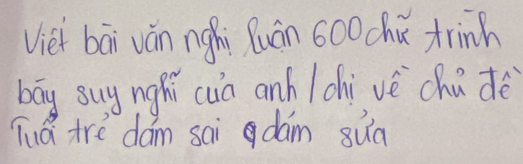 Viết bài văn nghị luận 600 chữ trình
bày suy nghĩ của anh / chị về chủ đề
Tuổi trẻ dám sai dám sửa